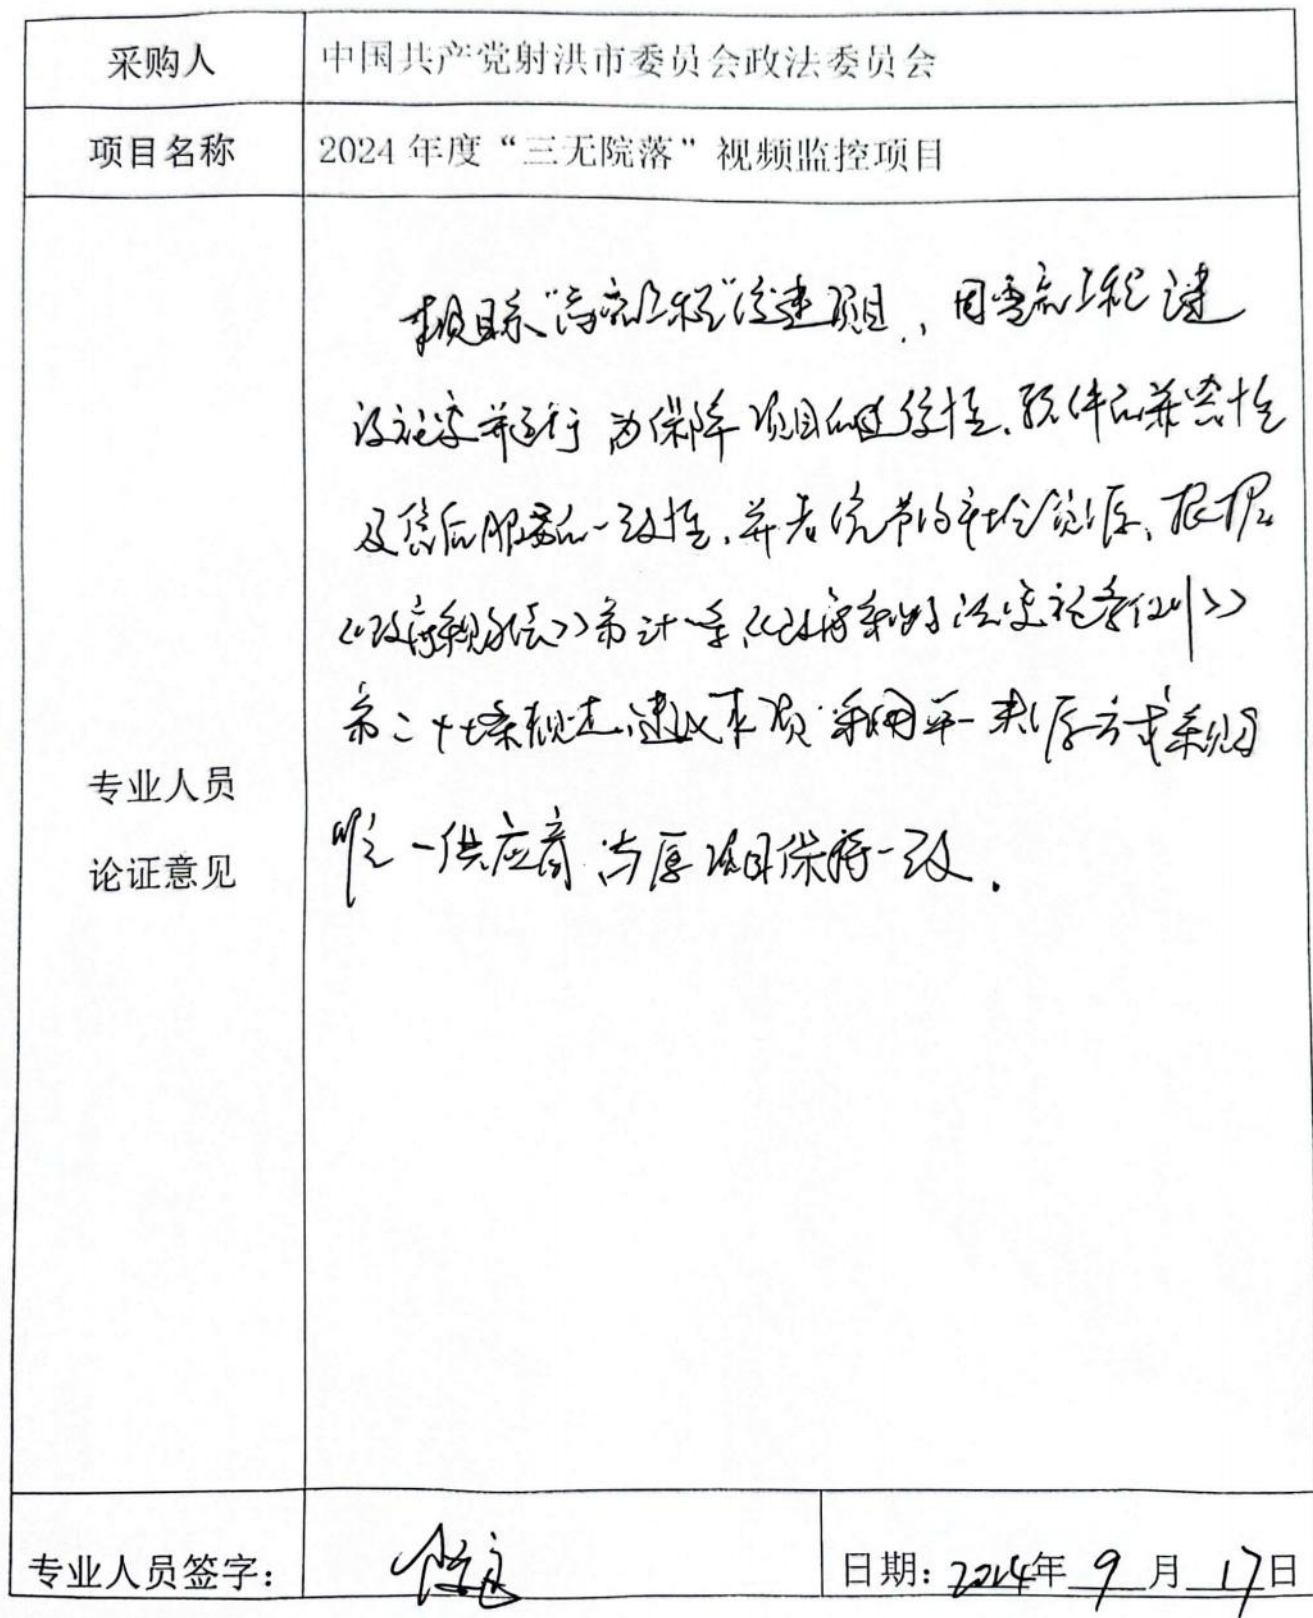 采购人 中国共产党射洪市委员会政法委员会
项目名称 2024年度“三无院落”视频监控项目
本项目系“雪亮工程”续建项目,因雪亮工程建
设完毕并运行 为保障项目的连续性、软件的兼容性
及售后服务的一致性,并考虑节约社会资源,根据
《政府采购法》第三十一条《政府采购法实施条例》
第二十七条规定,建议本项采用单一来源方式采购
唯一供应商 与原项目保持一致.
专业人员
论证意见
专业人员签字:
日期:2024年 9 月 17 日